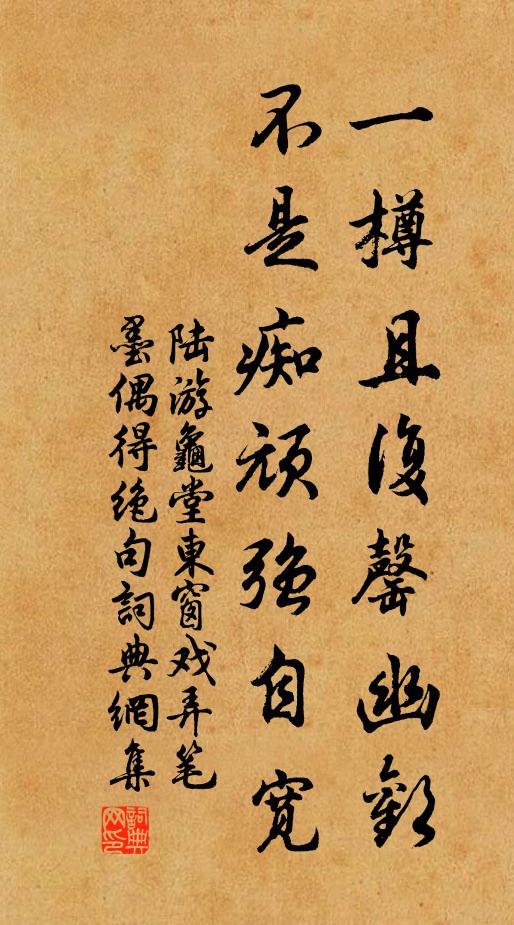 一樽且復罄幽歡
不是痴頑強自寬
陆游龜堂東窗戏弄笔
墨偶得绝句詞典網集
詞典网印